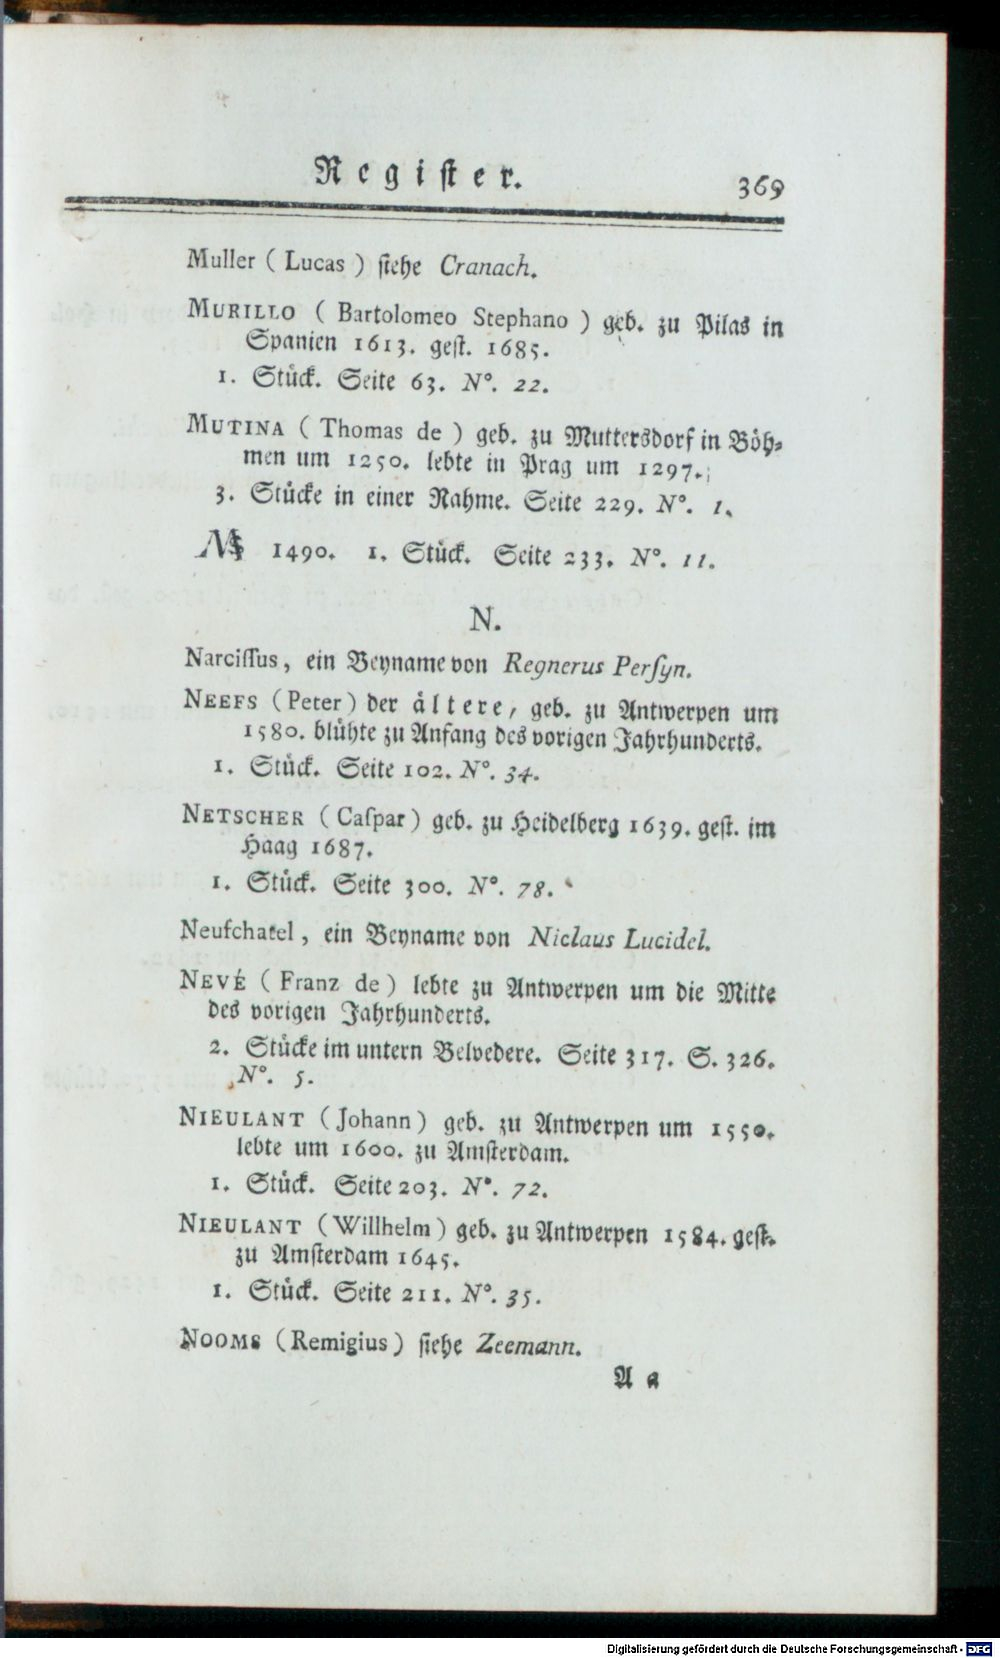 Register. 369
Muller (Lucas) siehe Cranach.
MURILLO (Bartolomeo Stephano) geb. zu Pilas in
Spanien 1613. gest. 1685.
1. Stück. Seite 63. N°. 22.
MUTINA (Thomas de) geb. zu Muttersdorf in Böh-
men um 1250. lebte in Prag um 1297.
3. Stücke in einer Rahme. Seite 229. N°. 1.
1490. 1. Stück. Seite 233. N°. 11.
N.
Narcissus, ein Beyname von Regnerus Persyn.
NEEFS (Peter) der ältere, geb. zu Antwerpen um
1580. blühte zu Anfang des vorigen Jahrhunderts.
1. Stück. Seite 102. N°. 34.
NETSCHER (Caspar) geb. zu Heidelberg 1639. gest. im
Haag 1687.
1. Stück. Seite 300. N°. 78.
Neufchatel, ein Beyname von Niclaus Lucidel.
NEVÉ (Franz de) lebte zu Antwerpen um die Mitte
des vorigen Jahrhunderts.
2. Stücke im untern Belvedere. Seite 317. S. 326.
N°. 5.
NIEULANT (Johann) geb. zu Antwerpen um 1550.
lebte um 1600. zu Amsterdam.
1. Stück. Seite 203. N°. 72.
NIEULANT (Willhelm) geb. zu Antwerpen 1584. gest.
zu Amsterdam 1645.
1. Stück. Seite 211. N°. 35.
NOOMS (Remigius) siehe Zeemann.
A a
Digitalisierung gefördert durch die Deutsche Forschungsgemeinschaft - DFG